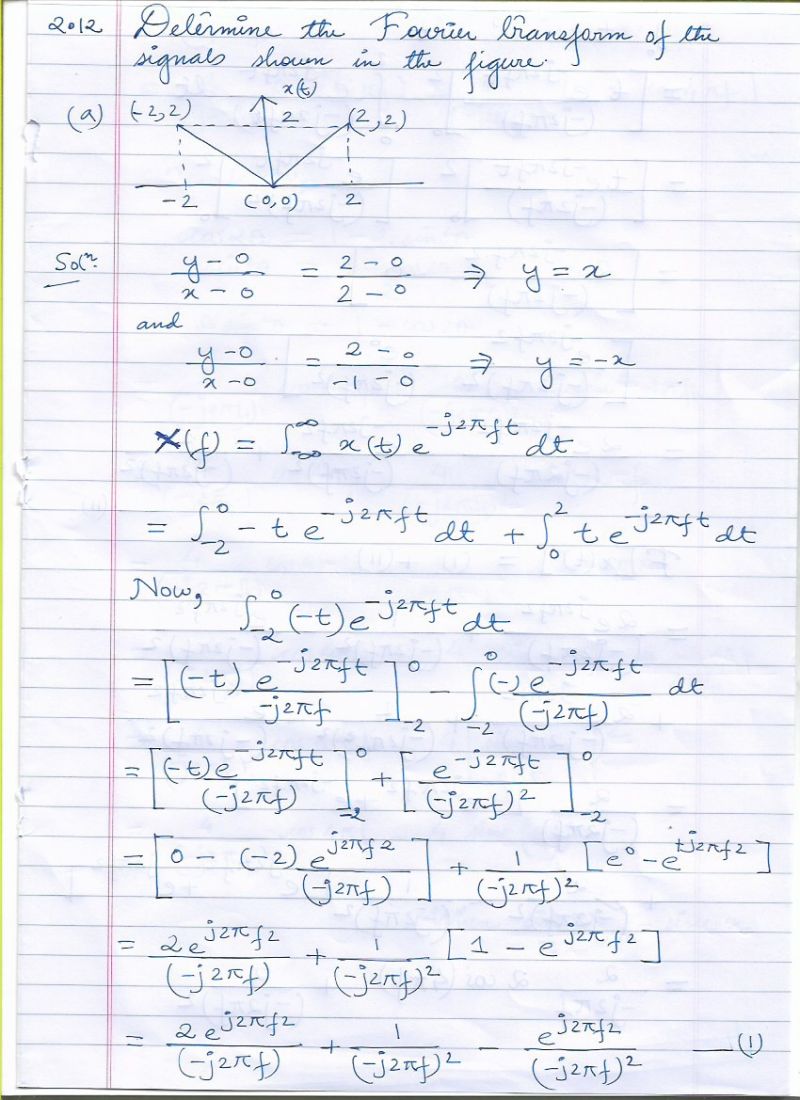 2012 Determine the Fourier transform of the
signals shown in the figure.
(a) (-2,2) x(t) 2 (2,2)
-2 (0,0) 2
Solⁿ: y-0/x-0 = 2-0/2-0 ⇒ y = x
and
y-0/x-0 = 2-0/-1-0 ⇒ y = -x
X(f) = ∫_{-∞}^{∞} x(t) e^{-j2πft} dt
= ∫_{-2}^{0} -t e^{-j2πft} dt + ∫_{0}^{2} t e^{-j2πft} dt
Now, ∫_{-2}^{0} (-t) e^{-j2πft} dt
= [(-t) e^{-j2πft}/-j2πf]_{-2}^{0} - ∫_{-2}^{0} (-) e^{-j2πft}/(-j2πf) dt
= [(-t) e^{-j2πft}/(-j2πf)]_{-2}^{0} + [e^{-j2πft}/(-j2πf)^2]_{-2}^{0}
= [0 - (-2) e^{j2πf2}/(-j2πf)] + 1/(-j2πf)^2 [e^0 - e^{+j2πf2}]
= 2e^{j2πf2}/(-j2πf) + 1/(-j2πf)^2 [1 - e^{j2πf2}]
= 2e^{j2πf2}/(-j2πf) + 1/(-j2πf)^2 - e^{j2πf2}/(-j2πf)^2 —(1)